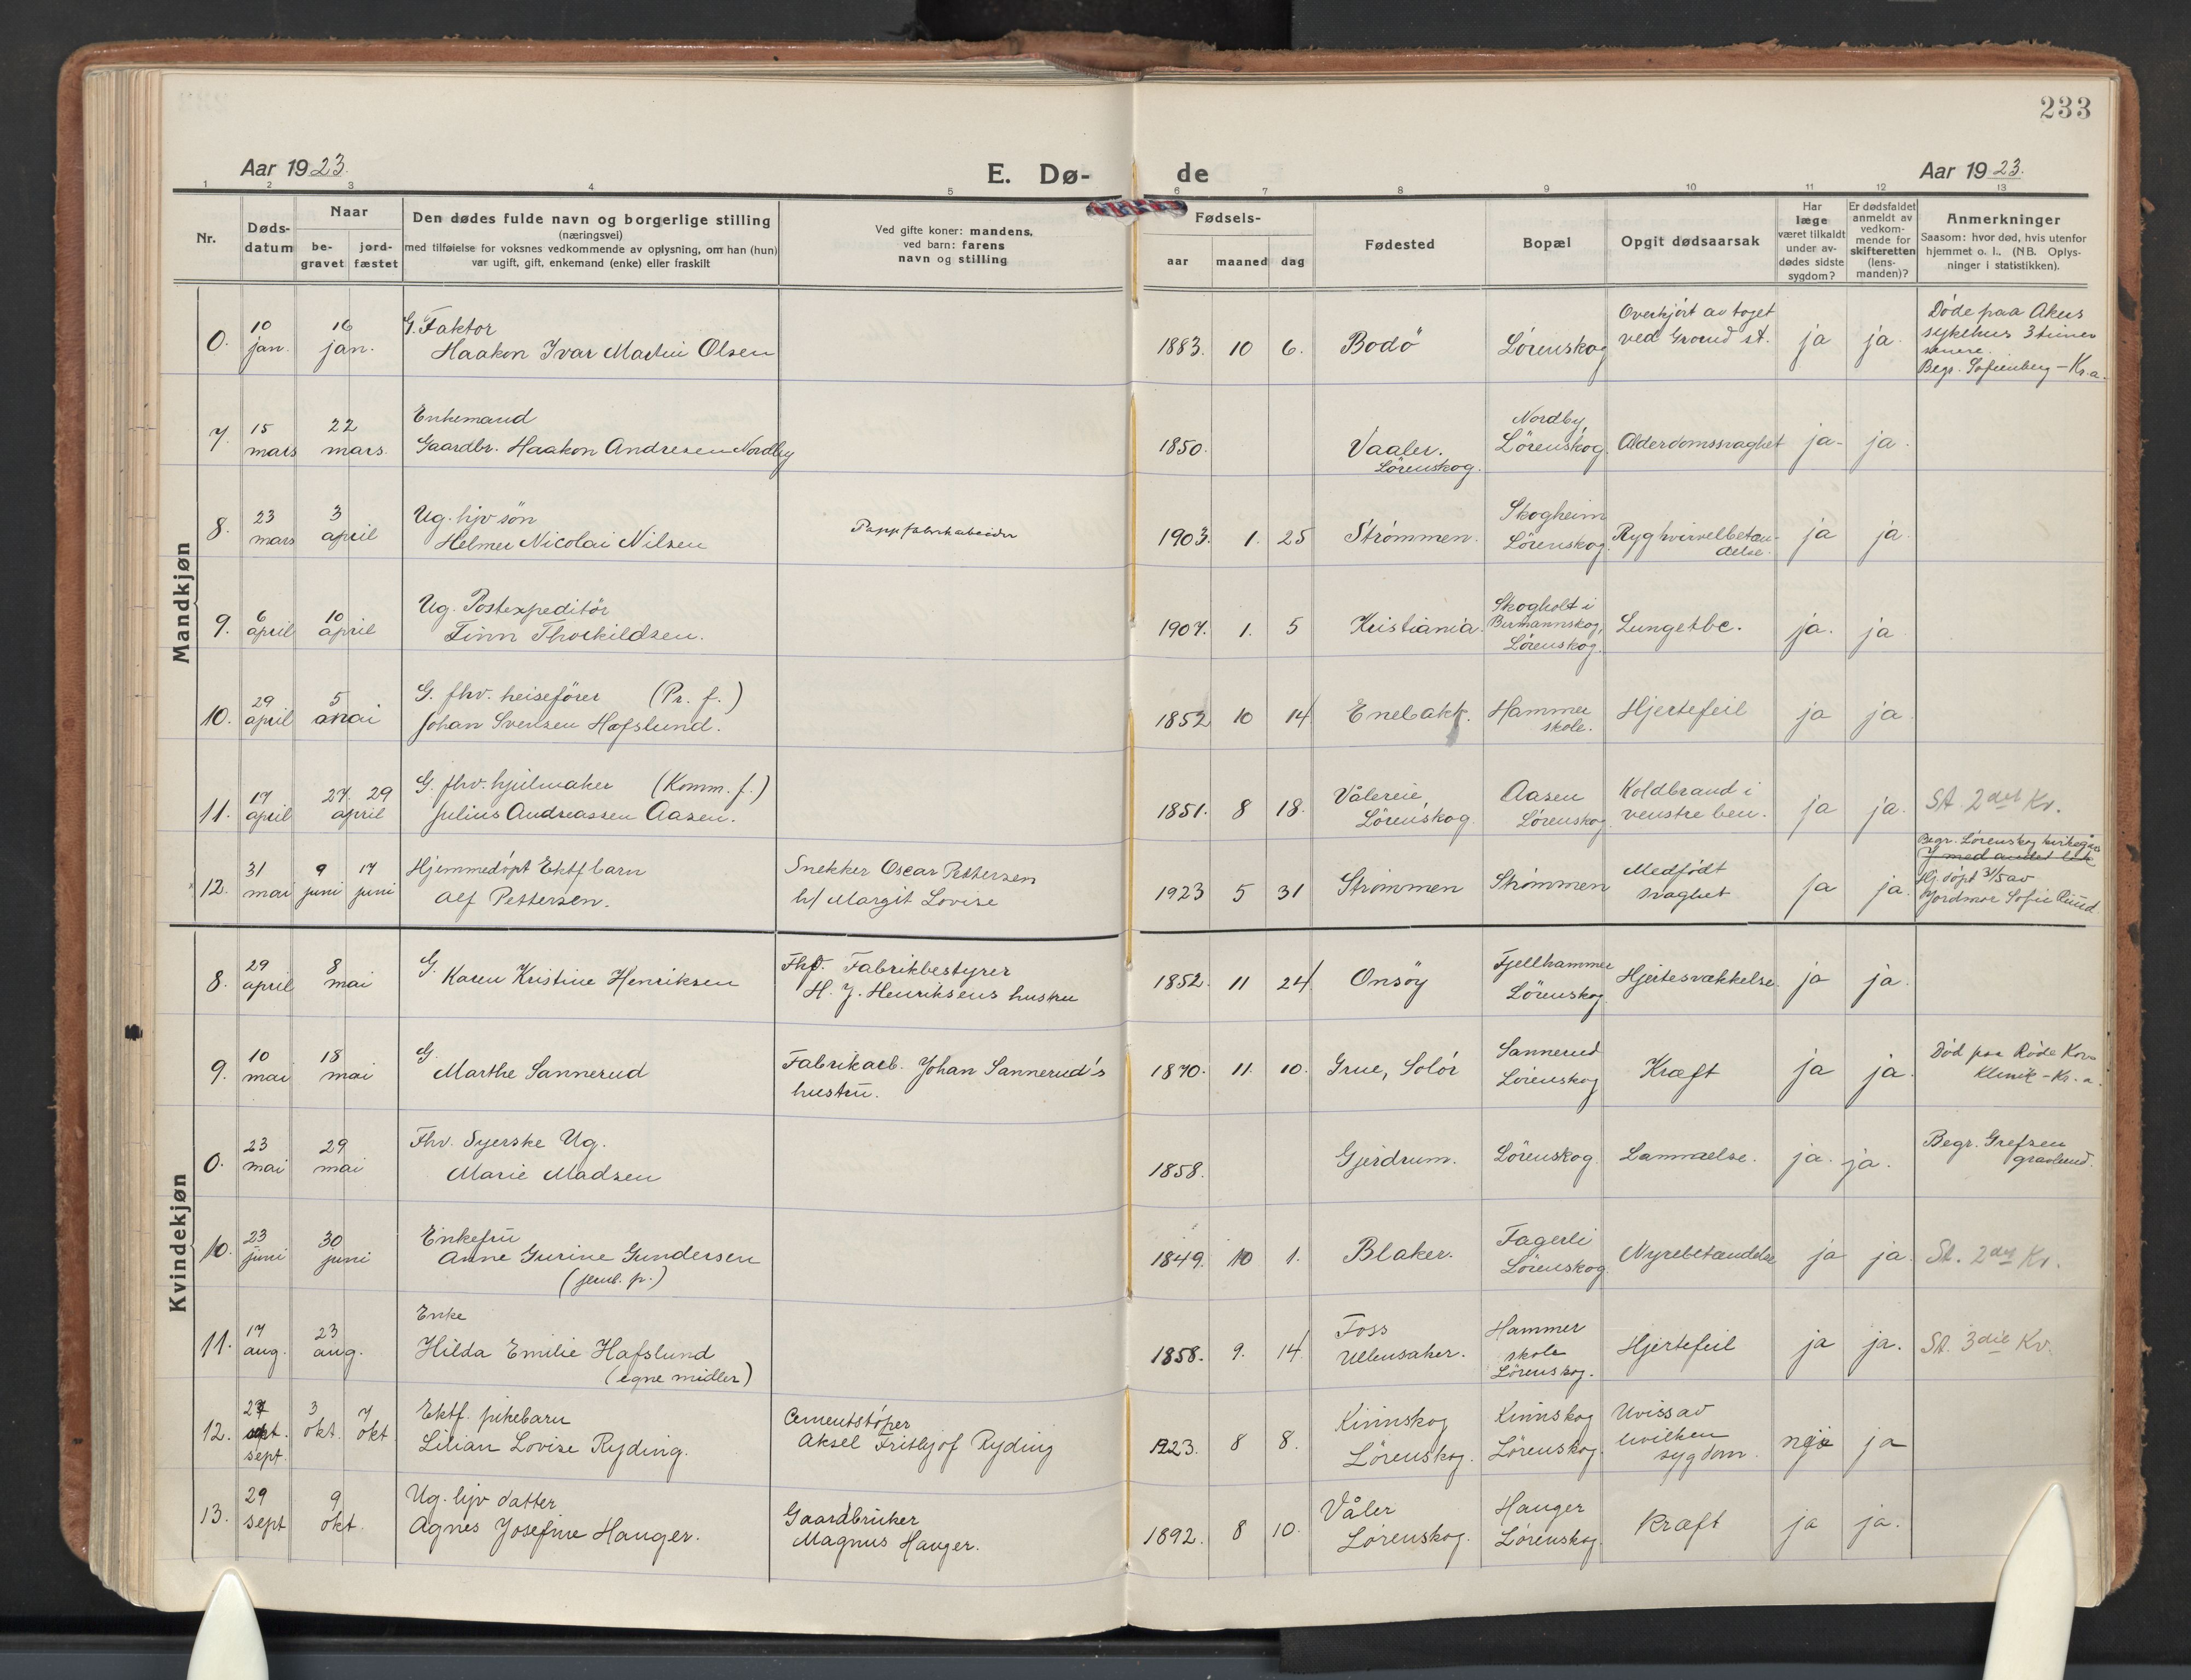 233
Aar 1923.
E. Dø-
de
Aar 1923.
1 2 3 4 5 6 7 8 9 10 11 12 13
Nr.
Døds-
datum
Naar
be-
gravet
jord-
fæstet
Den dødes fulde navn og borgerlige stilling
(næringsvei)
med tilføielse for voksnes vedkommende av oplysning, om han (hun)
var ugift, gift, enkemand (enke) eller fraskilt
Ved gifte koner: mandens,
ved barn: farens
navn og stilling
Fødsels-
aar maaned dag
Fødested
Bopæl
Opgit dødsaarsak
Har
læge
været tilkaldt
under av-
dødes sidste
sygdom?
Er dødsfaldet
anmeldt av
vedkom-
mende for
skifteretten
(lens-
manden)?
Anmerkninger
Saasom: hvor død, hvis utenfor
hjemmet o. l.. (NB. Oplys-
ninger i statistikken).
Mandkjøn
0. 10 jan. 16 jan.
G. Faktor
Haakon Ivar Martin Olsen
1883. 10 6. Bodö Lörenskog
Overkjört av toget
ved Grorud st.
ja ja.
Döde paa Akers
sykehus 3 timer
senere.
Begr. Sofienberg - Kr.a.
7. 15 mars 22 mars.
Enkemand
Gaardbr. Haakon Andresen Nordby
1850. Vaaler.
Lörenskog.
Nordby,
Lörenskog.
Alderdomssvaghet ja- ja.
8. 23 mars 3 april
Ug. hjv søn
Helmer Nicolai Nilsen
Pappfabrikarbeider
1903. 1. 25 Strömmen.
Skogheim
Lörenskog.
Ryghvirvelbetæn-
delse.
ja ja.
9. 6 april 10 april
Ug. Postexpeditör
Finn Thorkildsen.
1907. 1. 5 Kristiania.
Skogholt i
Lörenskog.
Lungetbc. ja. ja
10. 29 april 5 mai
G. fhv. heisefører (Pr. f.)
Johan Svensen Hafslund.
1852 10 14 Enebakk.
Hammer
skole.
Hjertefeil ja ja
11. 17 april 27. 29 april
G. fhv. hjulmaker (Komm. f.)
Julius Andreassen Aasen.
1851. 8 18.
Vålereie,
Lörenskog.
Aasen
Lörenskog.
Koldbrand i
venstre ben.
ja ja.
St. 2det Kv.
12. 31 mai 9 juni 17 juni
Hjemmedöpt Ektf barn
Alf Pettersen.
Snekker Oscar Pettersen
h/ Margit Lovise
1923 5 31 Strömmen Strömmen
Medfödt
svaghet
ja ja.
Begr. Lörenskog kirkegård
Hj. döpt 31/5 av
Jordmor Sofie Ruud
Kvindekjøn
8. 29 april 8 mai
G. Karen Kristine Henriksen
Fhv. Fabrikbestyrer
H. J. Henriksens hustru
1852. 11 24 Onsöy
Fjellhammer
Lörenskog
Hjertesvækkelse. ja ja.
9. 10 mai 18 mai
G.
Marthe Sannerud
Fabrikarb. Johan Sannerud's
hustru.
1870. 11. 10. Grue, Solör
Sannerud
Lörenskog
Kræft ja ja.
Död paa Röde Kors
Klinik - Kr. a.
0. 23 mai 29 mai
Fhv. Syerske Ug.
Marie Madsen
1858. Gjerdrum. Lörenskog Lammelse. ja. ja.
Begr. Grefsen
gravlund.
10. 23 juni 30 juni
Enkefru
Anne Gurine Gundersen
1849. 10 1. Blaker.
Fagerli
Lörenskog.
Nyrebetændelse ja ja.
St. 2det Kv.
11. 17 aug. 23 aug.
Enke
Hilda Emilie Hafslund
(egne midler)
1858. 9. 14.
Foss
Ullensaker.
Hammer
skole
Lörenskog.
Hjertefeil ja ja.
St. 3die Kv.
12. 27 sept. sept. 3 okt. 7 okt
Ektf. pikebarn
Lilian Lovise Ryding.
Cementstöper
Aksel Fritjof Ryding
1923. 8 8.
Kinnskog
Lörenskog.
Kinnskog
Lörenskog.
Uviss av
hvilken
sygdom.
nei ja
13. 29 sept 9 okt.
Ug. hjv datter
Agnes Josefine Hauger.
Gaardbruker
Magnus Hauger.
1892. 8 10.
Våler
Lörenskog.
Hauger
Lörenskog.
Kræft ja ja.